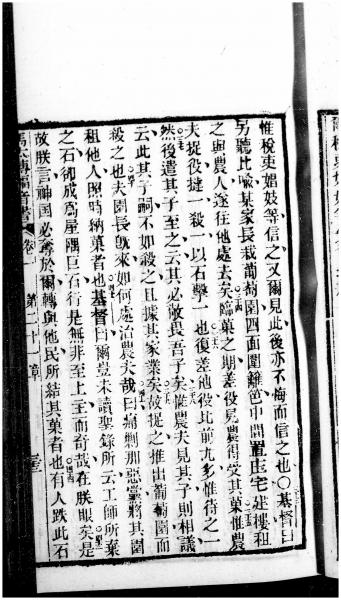 惟稅吏娼妓等信之又爾見此後亦不悔而信之也〇基督曰
另聽比喻某家長栽葡萄園四面圍籬笆中間置庄宅建樓租
之與農人遂往他處去矣臨菓之期差役見農得受其菓惟農
夫捉役撻一殺一以石擊一也復差他役比前尤多惟待之一
然後遣其子至之云其必敬畏吾子矣惟農夫見其子則相議
云此其子嗣不如殺之且據其家業矣故捉之推出葡萄園而
殺之也夫園長旣來如何處治農夫哉曰痛剿那惡黨將其園
租他人照時納菓者也基督曰爾豈未讀聖錄所云工師所棄
之石卻成爲屋隅巨石行是無非至上主而奇哉在朕眼矣是
故朕言神国必奪於爾轉與他民所結其菓者也有人跌此石
馬太傳福音書 卷一 第二十一章